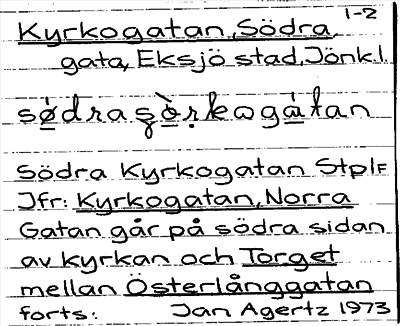 1-2
Kyrkogatan, Södra
gata, Eksjö stad, Jönk.l.
Södra Kyrkogatan StplF
Jfr: Kyrkogatan, Norra
Gatan går på södra sidan
av kyrkan och Torget
mellan Österlånggatan
forts: Jan Agertz 1973